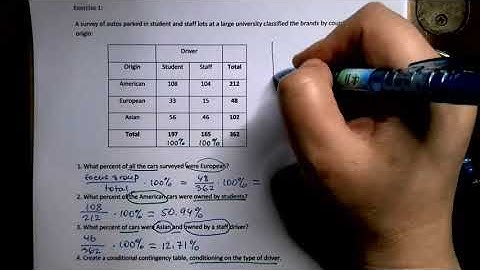 Exercise 1:
A survey of autos parked in student and staff lots at a large university classified the brands by coun
origin:
Driver
Origin Student Staff Total
American 108 104 212
European 33 15 48
Asian 56 46 102
Total 197 165 362
100% 100%
1. What percent of all the cars surveyed were European?
focus group / total · 100% = 48 / 362 100% =
2. What percent of the American cars were owned by students?
108 / 212 · 100% = 50.94%
3. What percent of cars were Asian and owned by a staff driver?
46 / 362 · 100% = 12.71%
4. Create a conditional contingency table, conditioning on the type of driver.